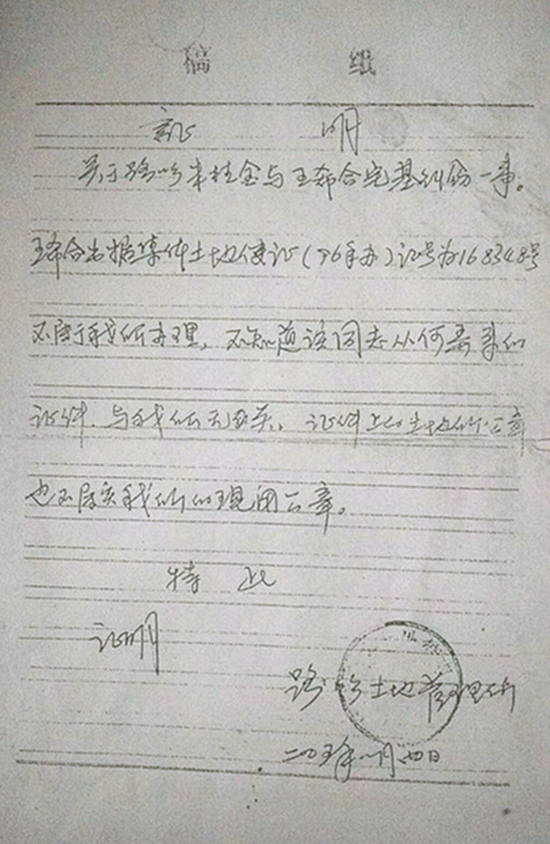 稿 纸
证 明
关于路 李桂金与王希合宅基纠纷一事。
王希合出据集体土地使证(96年办)证号为168348号
不属于我所办理，不知道该同志从何弄来的
证件，与我所无关。证件上的土地所公章
也不属实我所的现用公章。
特 此
证明
路 土地管理所
二〇〇 年 月四日